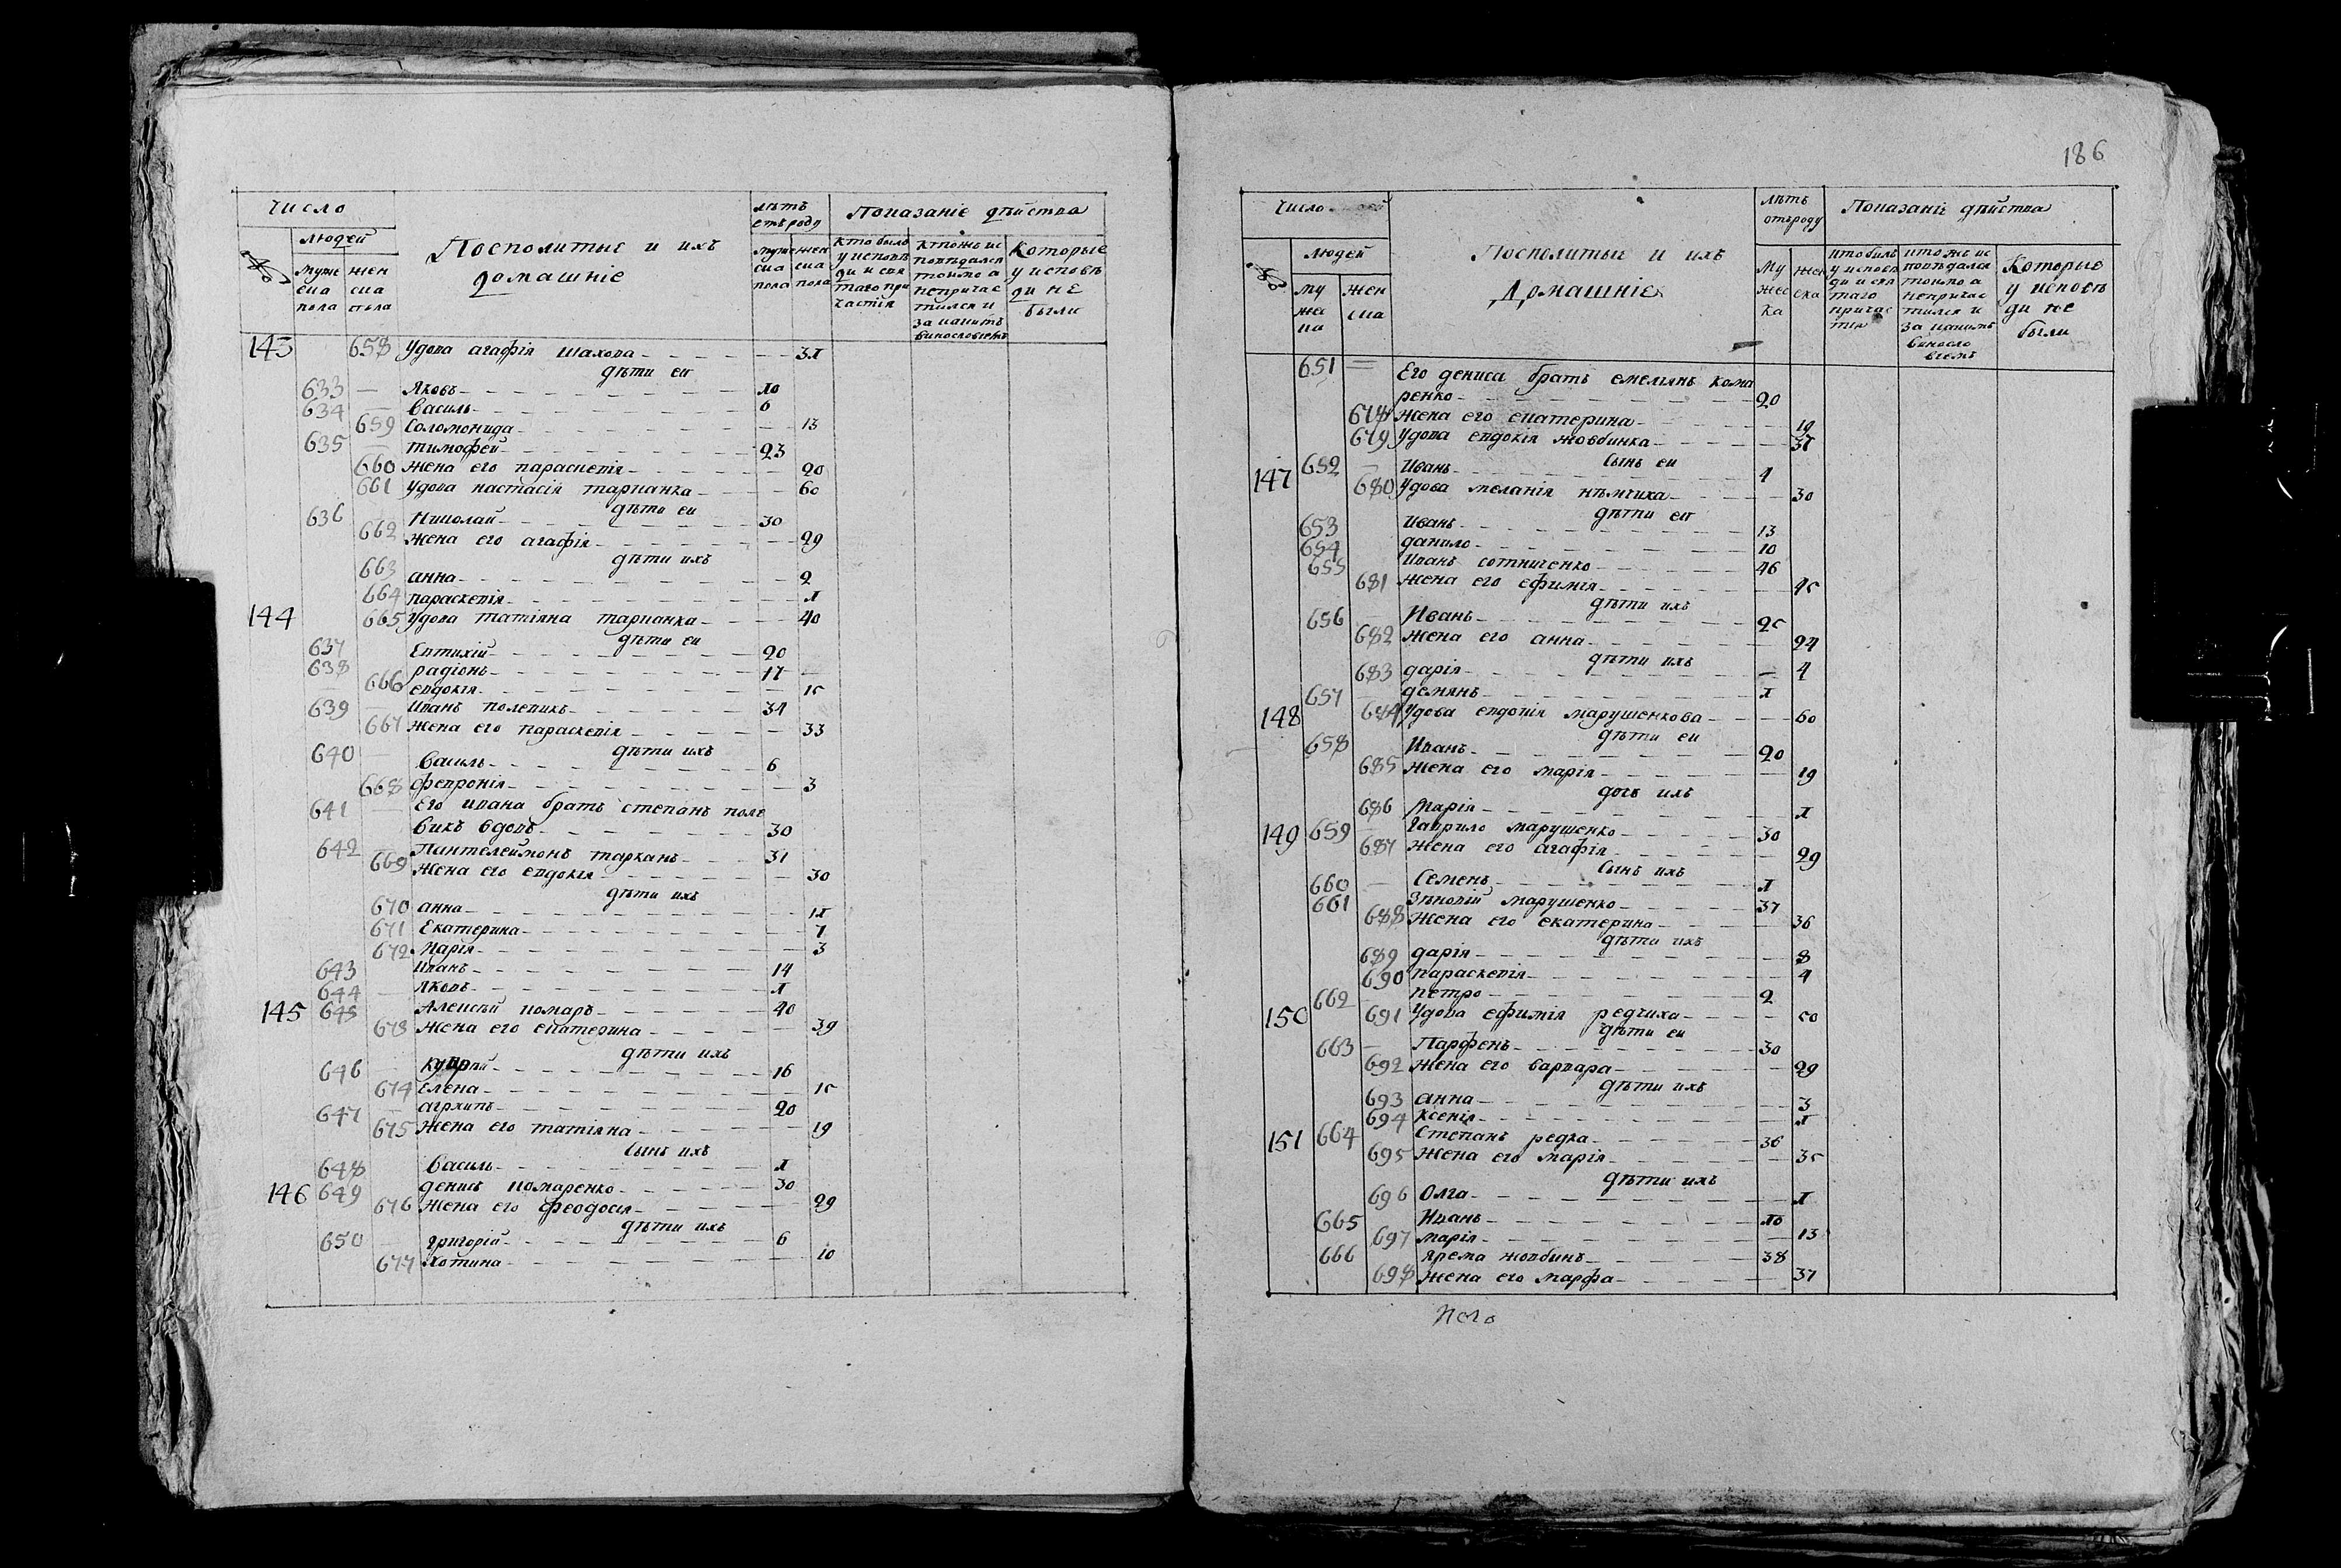 Число
Лѣтъ отъ роду
Показаніе дѣйства
№
людей
Посполитые и ихъ домашніе
муже ска пола
жен ска пола
кто былъ у исповѣди и свя таго при частія
кто жъ ис повѣдался токмо а непричас тился и за какимъ винословіемъ
Которые у исповѣ ди не были
143 658 Удова агафія шахова
дѣти еи
633 Яковъ
634 Василь 6
659 Соломонида 13
635 тимофей 23
660 жена его параскевія 20
661 Удова настасія тарканка 60
дѣти еи
636 Николай 30
662 жена его агафія 29
дѣти ихъ
663 анна 2
664 параскевія
144 665 Удова татіяна тарканка 40
дѣти еи
637 Евтихій 20
638 радіонъ 17
666 евдокія 15
639 Иванъ полевикъ 34
667 жена его параскевія 33
дѣти ихъ
640 Василь 6
668 Февронія 3
641 Его ивана братъ степанъ поле
викъ вдовъ 30
642 Пантелеймонъ тарканъ 31
669 жена его евдокія 30
дѣти ихъ
670 анна
671 Екатерина 7
672 Марія 3
643 Иванъ 14
644 Яковъ
145 645 Алексѣй комаръ 40
673 жена его екатерина 39
дѣти ихъ
646 16
674 Елена 15
647 архипъ 20
675 жена его татіяна 19
сынъ ихъ
648 Василь
146 649 денисъ комаренко 30
676 жена его феодосія 29
дѣти ихъ
650 григорій 6
677 Хотина 10
186
Число людей
Лѣтъ отъ роду
Показаніе дѣйства
№
людей
Посполитые и ихъ домашніе
му жес ка
жен ска
му жес ка
жен ска
кто былъ у исповѣ ди и свя таго причас тія
кто жъ ис повѣдался токмо а непричас тился и за какимъ виносло віемъ
Которые у исповѣ ди не были
651 Его дениса братъ емелянъ кома
ренко 20
678 жена его екатерина 19
679 Удова евдокія жовбинка 37
сынъ еи
652 Иванъ 4
147 680 Удова меланія нѣмчиха 30
дѣти еи
653 Иванъ 13
654 данило 10
655 Иванъ сотниченко 46
681 жена его ефимія 45
дѣти ихъ
656 Иванъ 25
682 жена его анна 24
дѣти ихъ
683 дарія 4
657 демянъ
148 684 Удова евдокія марушенкова 60
дѣти еи
658 Иванъ 20
685 жена его марія 19
дочь ихъ
686 Марія
149 659 Гаврило марушенко 30
687 жена его агафія 29
сынъ ихъ
660 Семенъ
661 Зѣновій марушенко 37
688 жена его екатерина 36
дѣти ихъ
689 дарія 8
690 параскевія 4
662 петро 2
150 691 Удова ефимія редчиха 50
дѣти еи
663 Парфенъ 30
692 жена его варвара 29
дѣти ихъ
693 анна 3
694 ксенія
151 664 Степанъ редка 36
695 жена его марія 35
дѣти ихъ
696 Олга
665 Иванъ
697 марія 13
666 ярема жовбинъ 38
698 жена его марфа 37